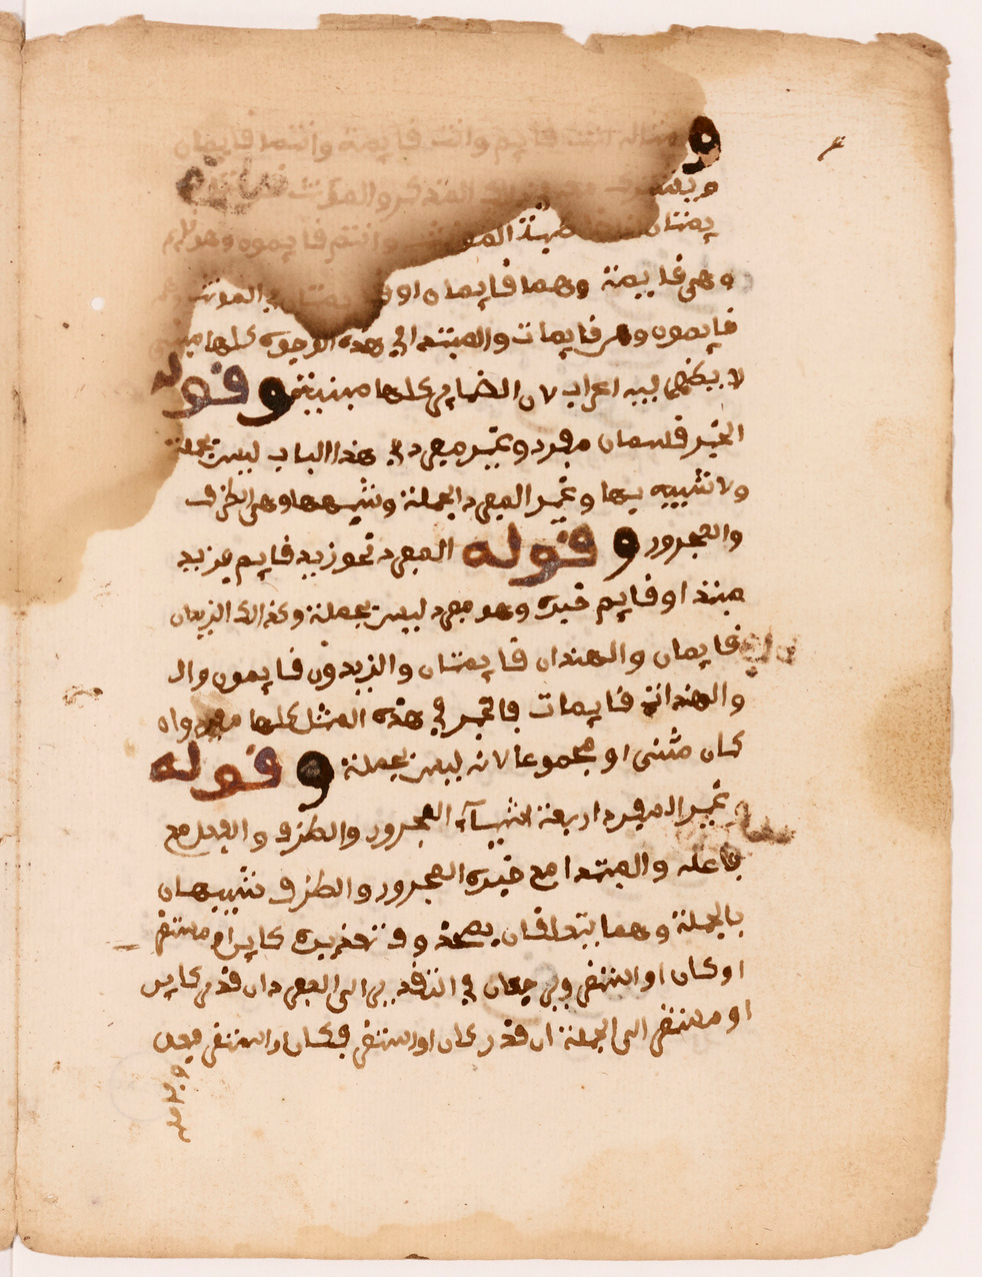 و مثاله انت قايم وانت قايمة وانتما قايمان
المذكر والمؤنث
يمتان وانتم قايمون وهو قايم
وهي قايمة وهما قايمان او قايمتان في المؤنث وهم
قايمون وهن قايمات والمبتدا في هذه الوجوه كلها مبني
لا يظهر فيه اعراب لان الضماير كلها مبنية وقوله
الخبر قسمان مفرد وغير مفرد في هذا الباب ليس بجملة
ولا شبيه بها وغير المفرد الجملة وشبهها وهي الظرف
والمجرور وقوله المفرد نحو زيد قايم فزيد
مبتدا وقايم خبره وهو مفرد ليس بجملة وكذالك الزيدان
قايمان والهندان قايمتان والزيدون قايمون وال
والهندات قايمات فالخبر في هذه المثل كلها مفرد وان
كان مثنى او مجموعا لانه ليس بجملة وقوله
وغير المفرد اربعة اشياء المجرور والظرف والفعل مع
فاعله والمبتدا مع خبره المجرور والظرف شبيهان
بالجملة وهما يتعلقان بمحذوف تقديره كاين او مستقر
او كان او استقر ويرجعان في التقدير الى المفرد ان قدر كاين
او مستقر الى الجملة ان قدر كان او استقر فكان او استقر فعل